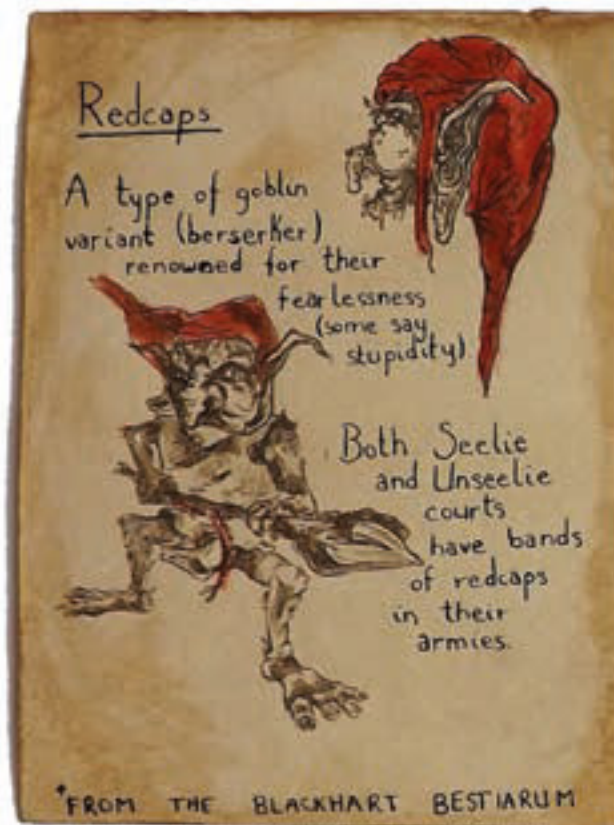 Redcaps
A type of goblin
variant (berserker)
renowned for their
fearlessness
(some say
stupidity)
Both Seelie
and Unseelie
courts
have bands
of redcaps
in their
armies.
*FROM THE BLACKHART BESTIARUM